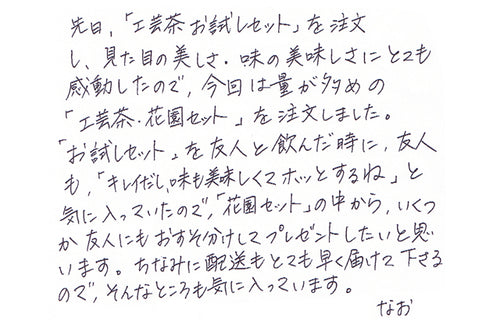 先日,「工芸茶 お試しセット」を注文
し、見た目の美しさ・味の美味しさにとても
感動したので、今回は量が多めの
「工芸茶・花園セット」を注文しました。
「お試しセット」を友人と飲んだ時に、友人
も、「キレイだし、味も美味しくてホッとするね」と
気に入っていたので、「花園セット」の中から、いくつ
か友人にもおすそ分けしてプレゼントしたいと思
います。ちなみに配送もとても早く届けて下さる
ので、そんなところも気に入っています。
なお